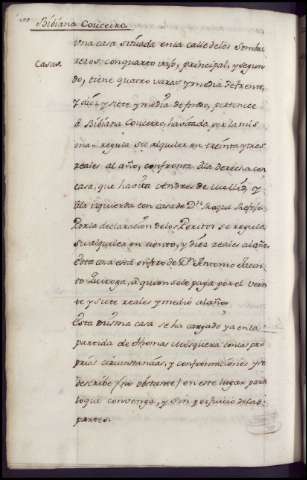 Bibiana Couceiro
Una casa situada en la calle de los Sombre
Casas. reros, con quarto vajo, principal, y segun
do, tiene quatro varas y media de frente,
y siete y media de fondo, pertenece
a Bibiana Couceiro, havitada por la mis
ma regula su alquiler en treinta y tres
reales al año, confronta a la derecha con
casa, que havita Andres de y
a la izquierda con casa de D.ª
Por la declaracion de los Peritos se regula
su alquiler en ciento, y diez reales al año.
Esta casa està de D.n Antonio Jacin
to Quiroga, à quien solo paga por el vein
te y siete reales y medio al año
Esta misma casa se ha cargado ya en la
partida de Thomas Mosquera con las pro
prias circunstancias, y confrontaciones y se
describe (no obstante) en este lugar para
lo que convenga, y sin perjuicio de las
partes.